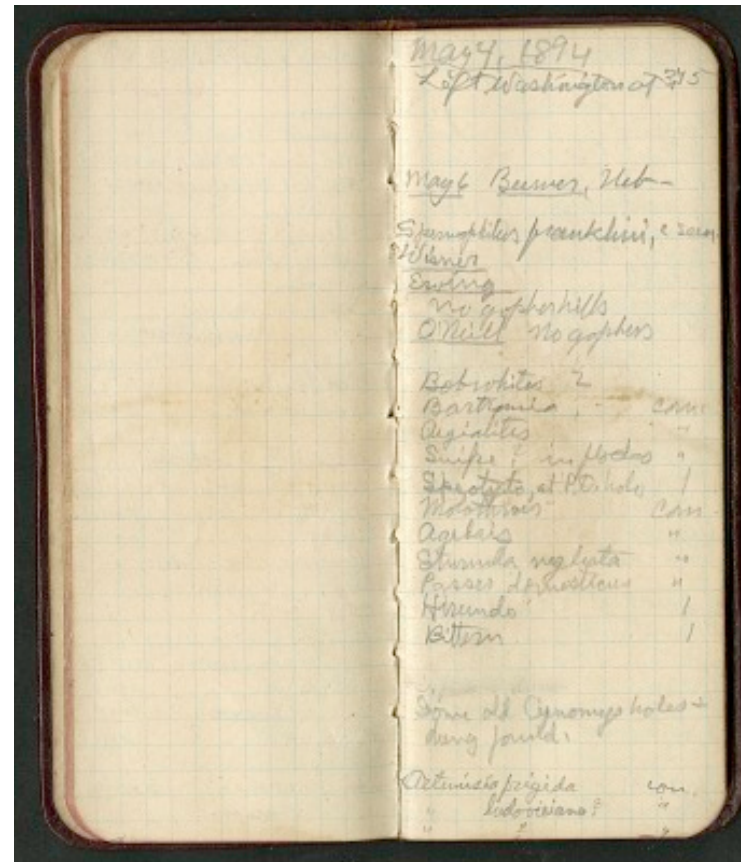 May 4, 1894
Left Washington at 3:15
May 6 Beemer, Neb-
Spermophilus franklini, 2 seen.
Wisner
Ewing
no gopher hills
O'Neill No gophers
Bobwhites 2
Bartramia com.
Aegialites "
Snipe? in flocks "
Speotyto, at P.D. hole 1
Molothrus com
Agelais "
Sturnella neglecta "
Passer domesticus "
Hirundo 1
Bittern 1
Some old Cynomys holes +
dung found.
Artemisia frigida com.
" ludoviciana? "
" ? "